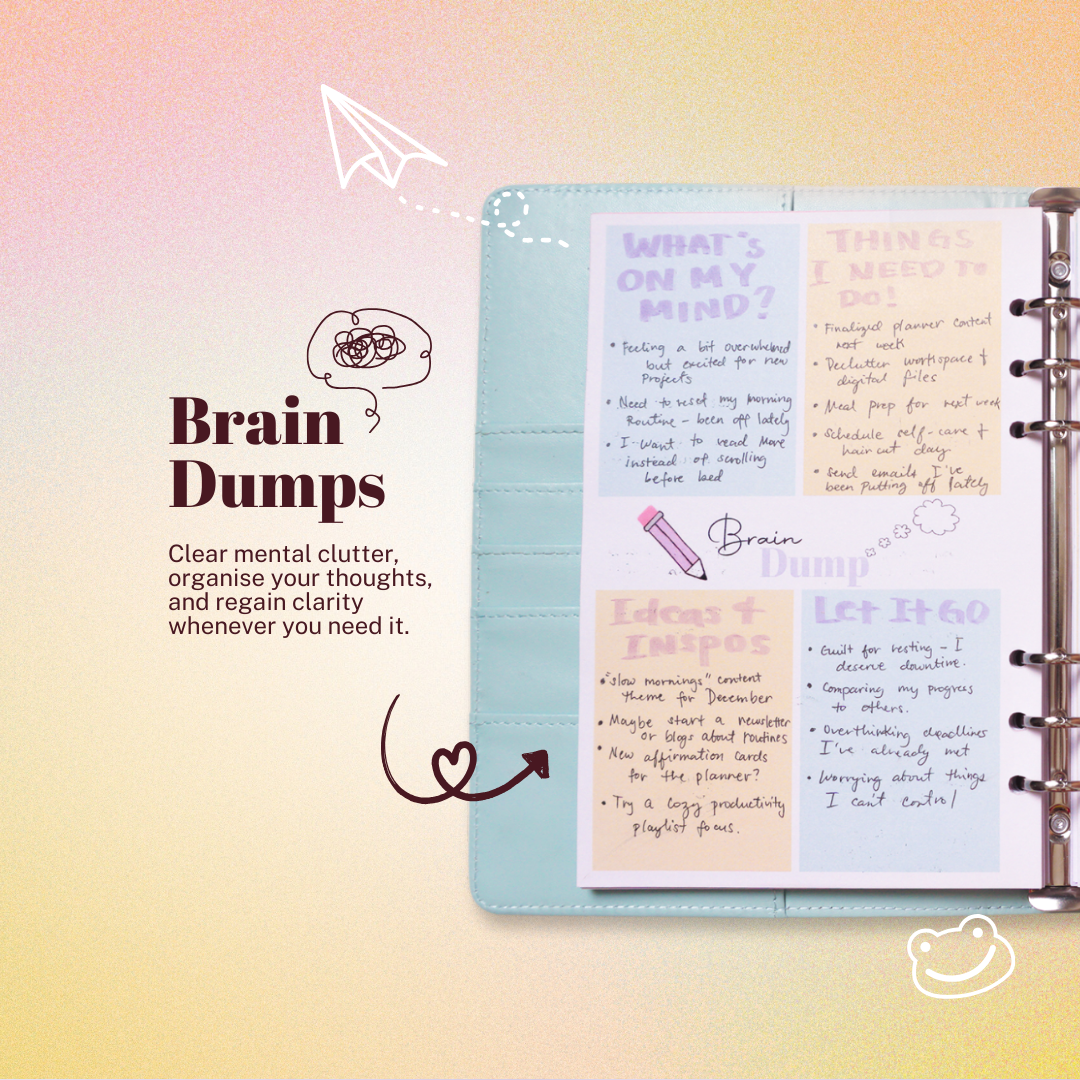 Brain
Dumps
Clear mental clutter,
organise your thoughts,
and regain clarity
whenever you need it.
WHAT'S
ON MY
MIND?
• Feeling a bit overwhelmed
but excited for new
projects
• Need to reset my morning
Routine - been off lately
• I want to read more
instead of scrolling
before bed
THINGS
I NEED TO
DO!
• Finalized planner content
next week
• Declutter workspace &
digital files
• Meal prep for next week
• Schedule self-care &
haircut day
• Send emails I've
been putting off lately
Brain
Dump
Ideas &
INSPOS
• "Slow mornings" content
theme for December
• Maybe start a newsletter
or blogs about routines
• New affirmation cards
for the planner?
• Try a cozy productivity
playlist focus.
Let It GO
• Guilt for resting - I
deserve downtime.
• Comparing my progress
to others.
• Overthinking deadlines
I've already met
• Worrying about things
I can't control